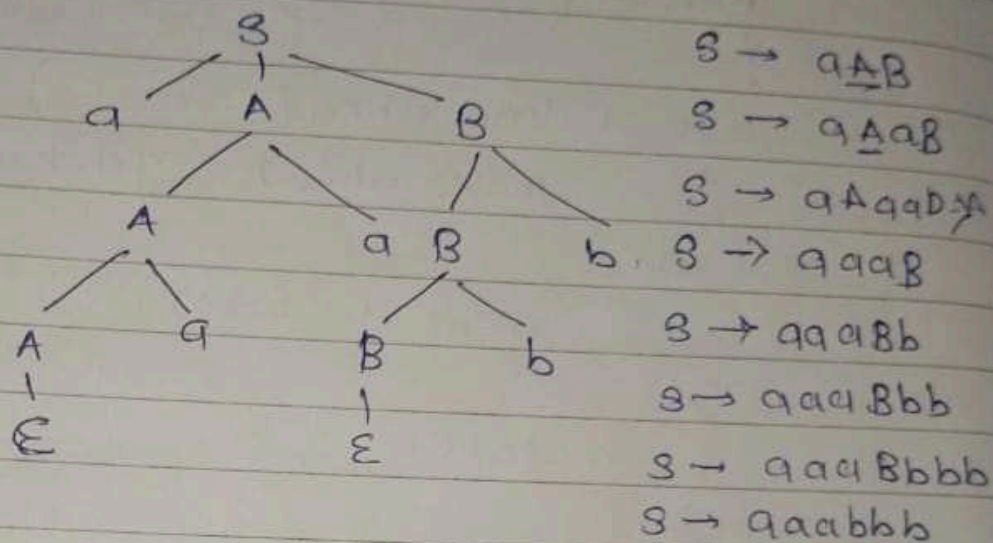 S
a A B
A a B b
A a B b
ε ε
S → aAB
S → aAaB
S → aAaa
S → aaaB
S → aaaBb
S → aaaBbb
S → aaaBbbb
S → aaabbb